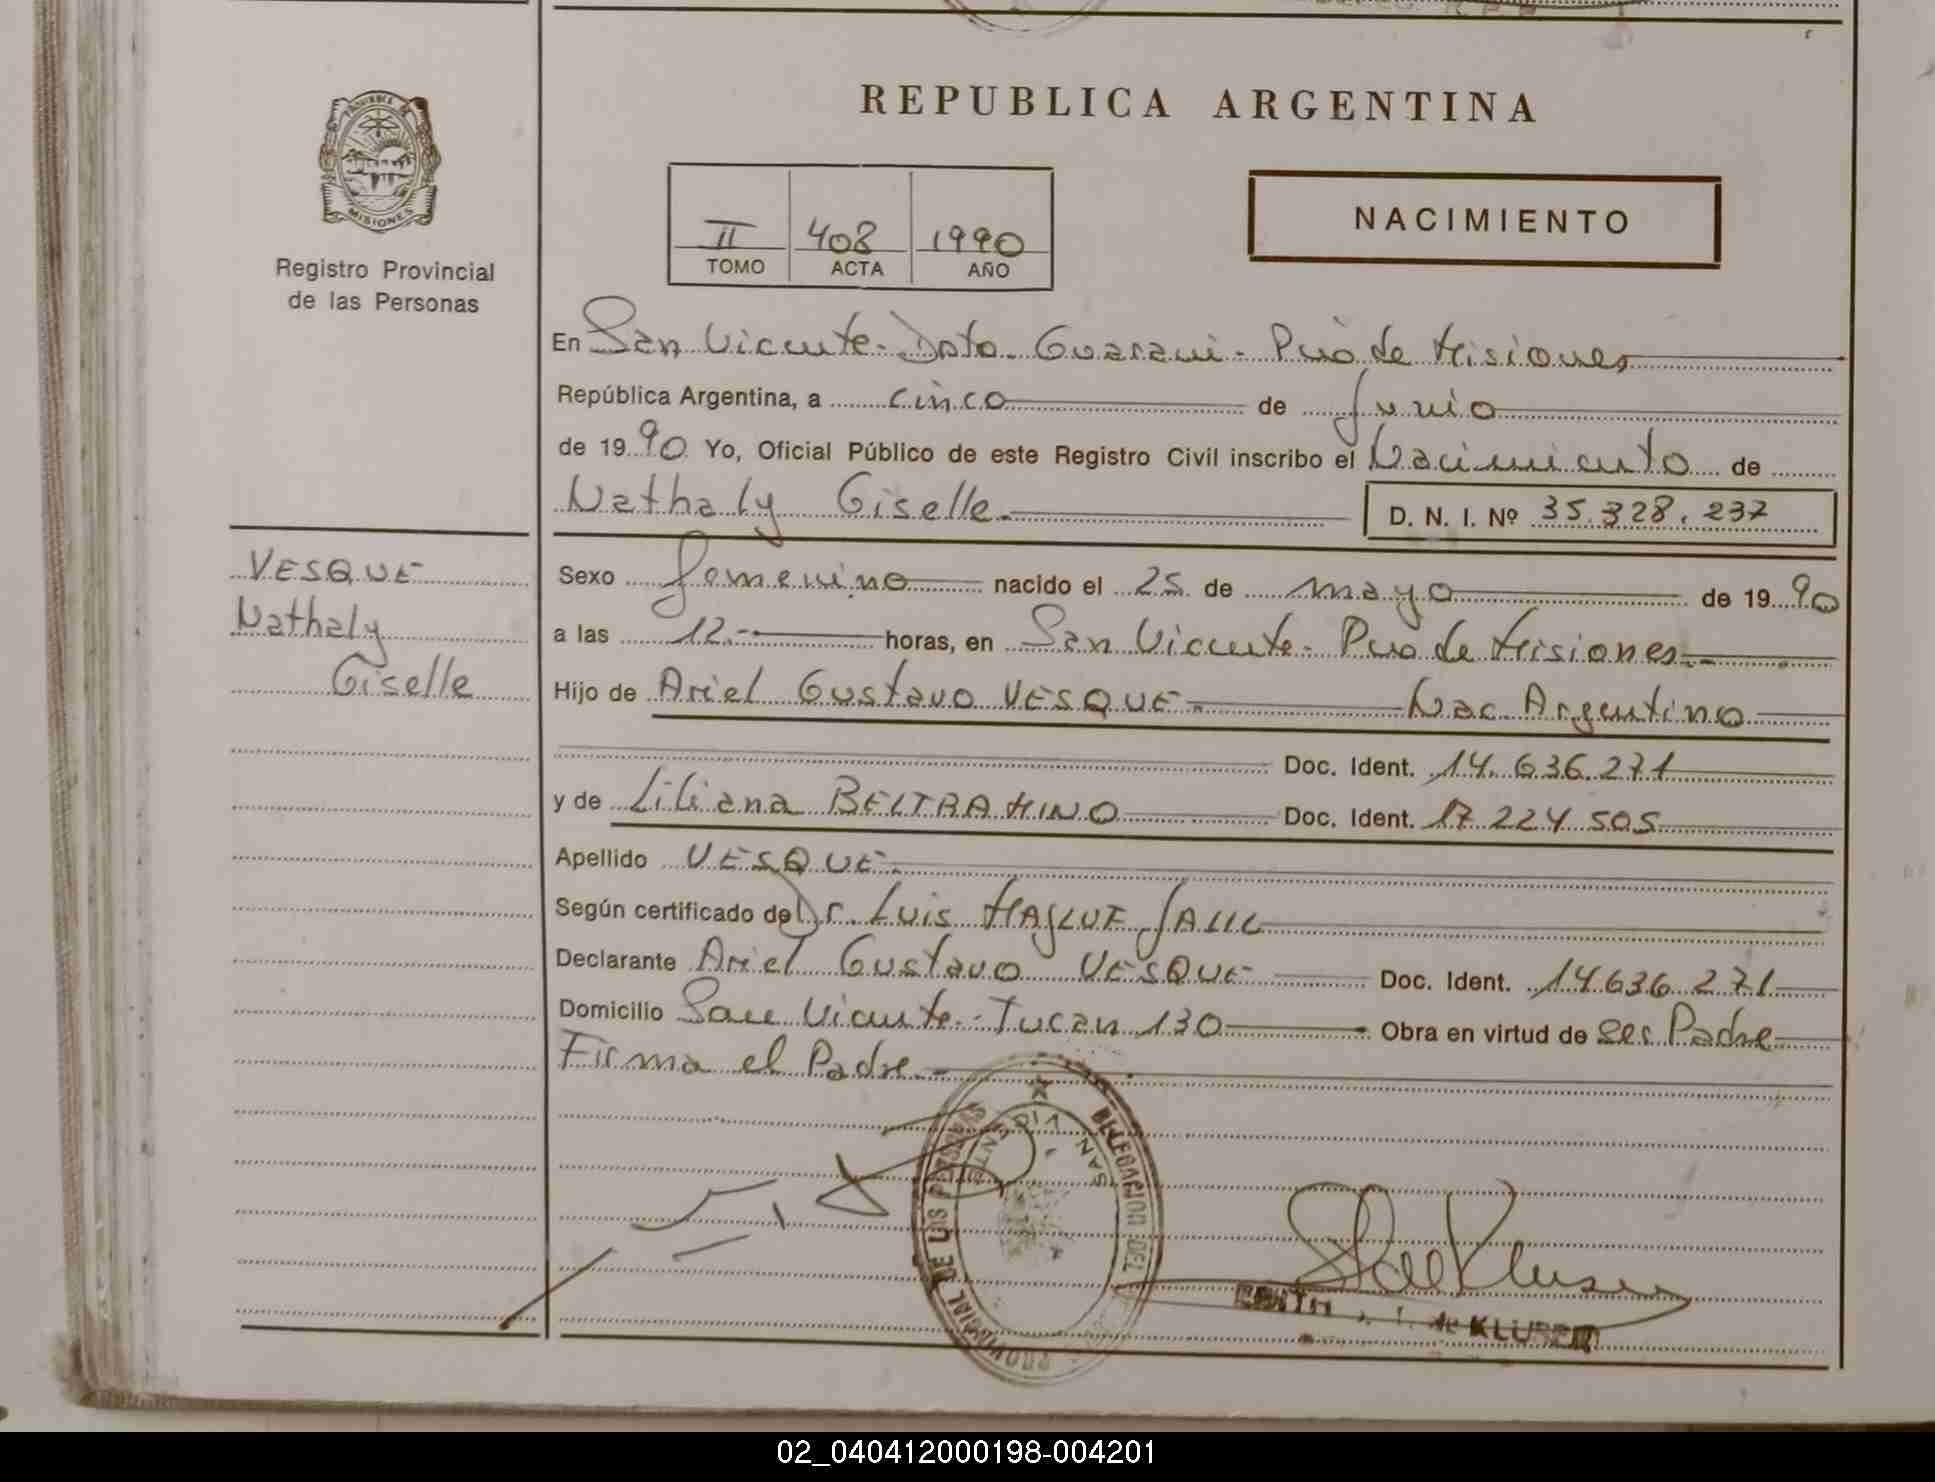 REPUBLICA ARGENTINA
PROVINCIA DE
MISIONES
Registro Provincial
de las Personas
II 408 1990
TOMO ACTA AÑO
NACIMIENTO
En San Vicente - Dpto. Guarani - Pcia de Misiones
República Argentina, a cinco de Junio
de 1990 Yo, Oficial Público de este Registro Civil inscribo el Nacimiento de
Nathaly Giselle.- D. N. I. Nº 35.328.237
VESQUE
Nathaly
Giselle
Sexo femenino nacido el 25 de mayo de 1990
a las 12.- horas, en San Vicente - Pcia de Misiones.-
Hijo de Ariel Gustavo VESQUE.- Nac. Argentino
Doc. Ident. 14.636.271
y de Liliana BELTRAMINO Doc. Ident. 17.224.505
Apellido VESQUE.-
Según certificado de Dr. Luis
Declarante Ariel Gustavo VESQUE Doc. Ident. 14.636.271
Domicilio San Vicente - Tucan 130 Obra en virtud de Ser Padre
Firma el Padre.-
DELEGACION DEL PROVINCIAL DE LAS PERSONAS
SAN VICENTE
de KLUSEN
02_040412000198-004201